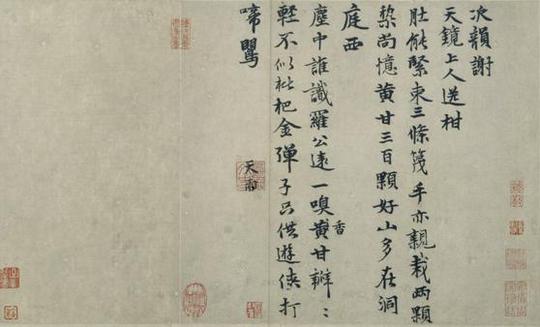 次韻謝
天鏡上人送柑
肚能緊束三條篾手亦親栽两顆
棃尚憶黄甘三百顆好山多在洞
庭西
塵中誰識羅公遠一嗅黄甘瓣〻
香
輕不似枇杷金彈子只供遊俠打
啼鸎
天雨